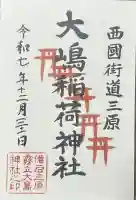 西國街道三原
大嶋稲荷神社
令和七年十二月三十一日